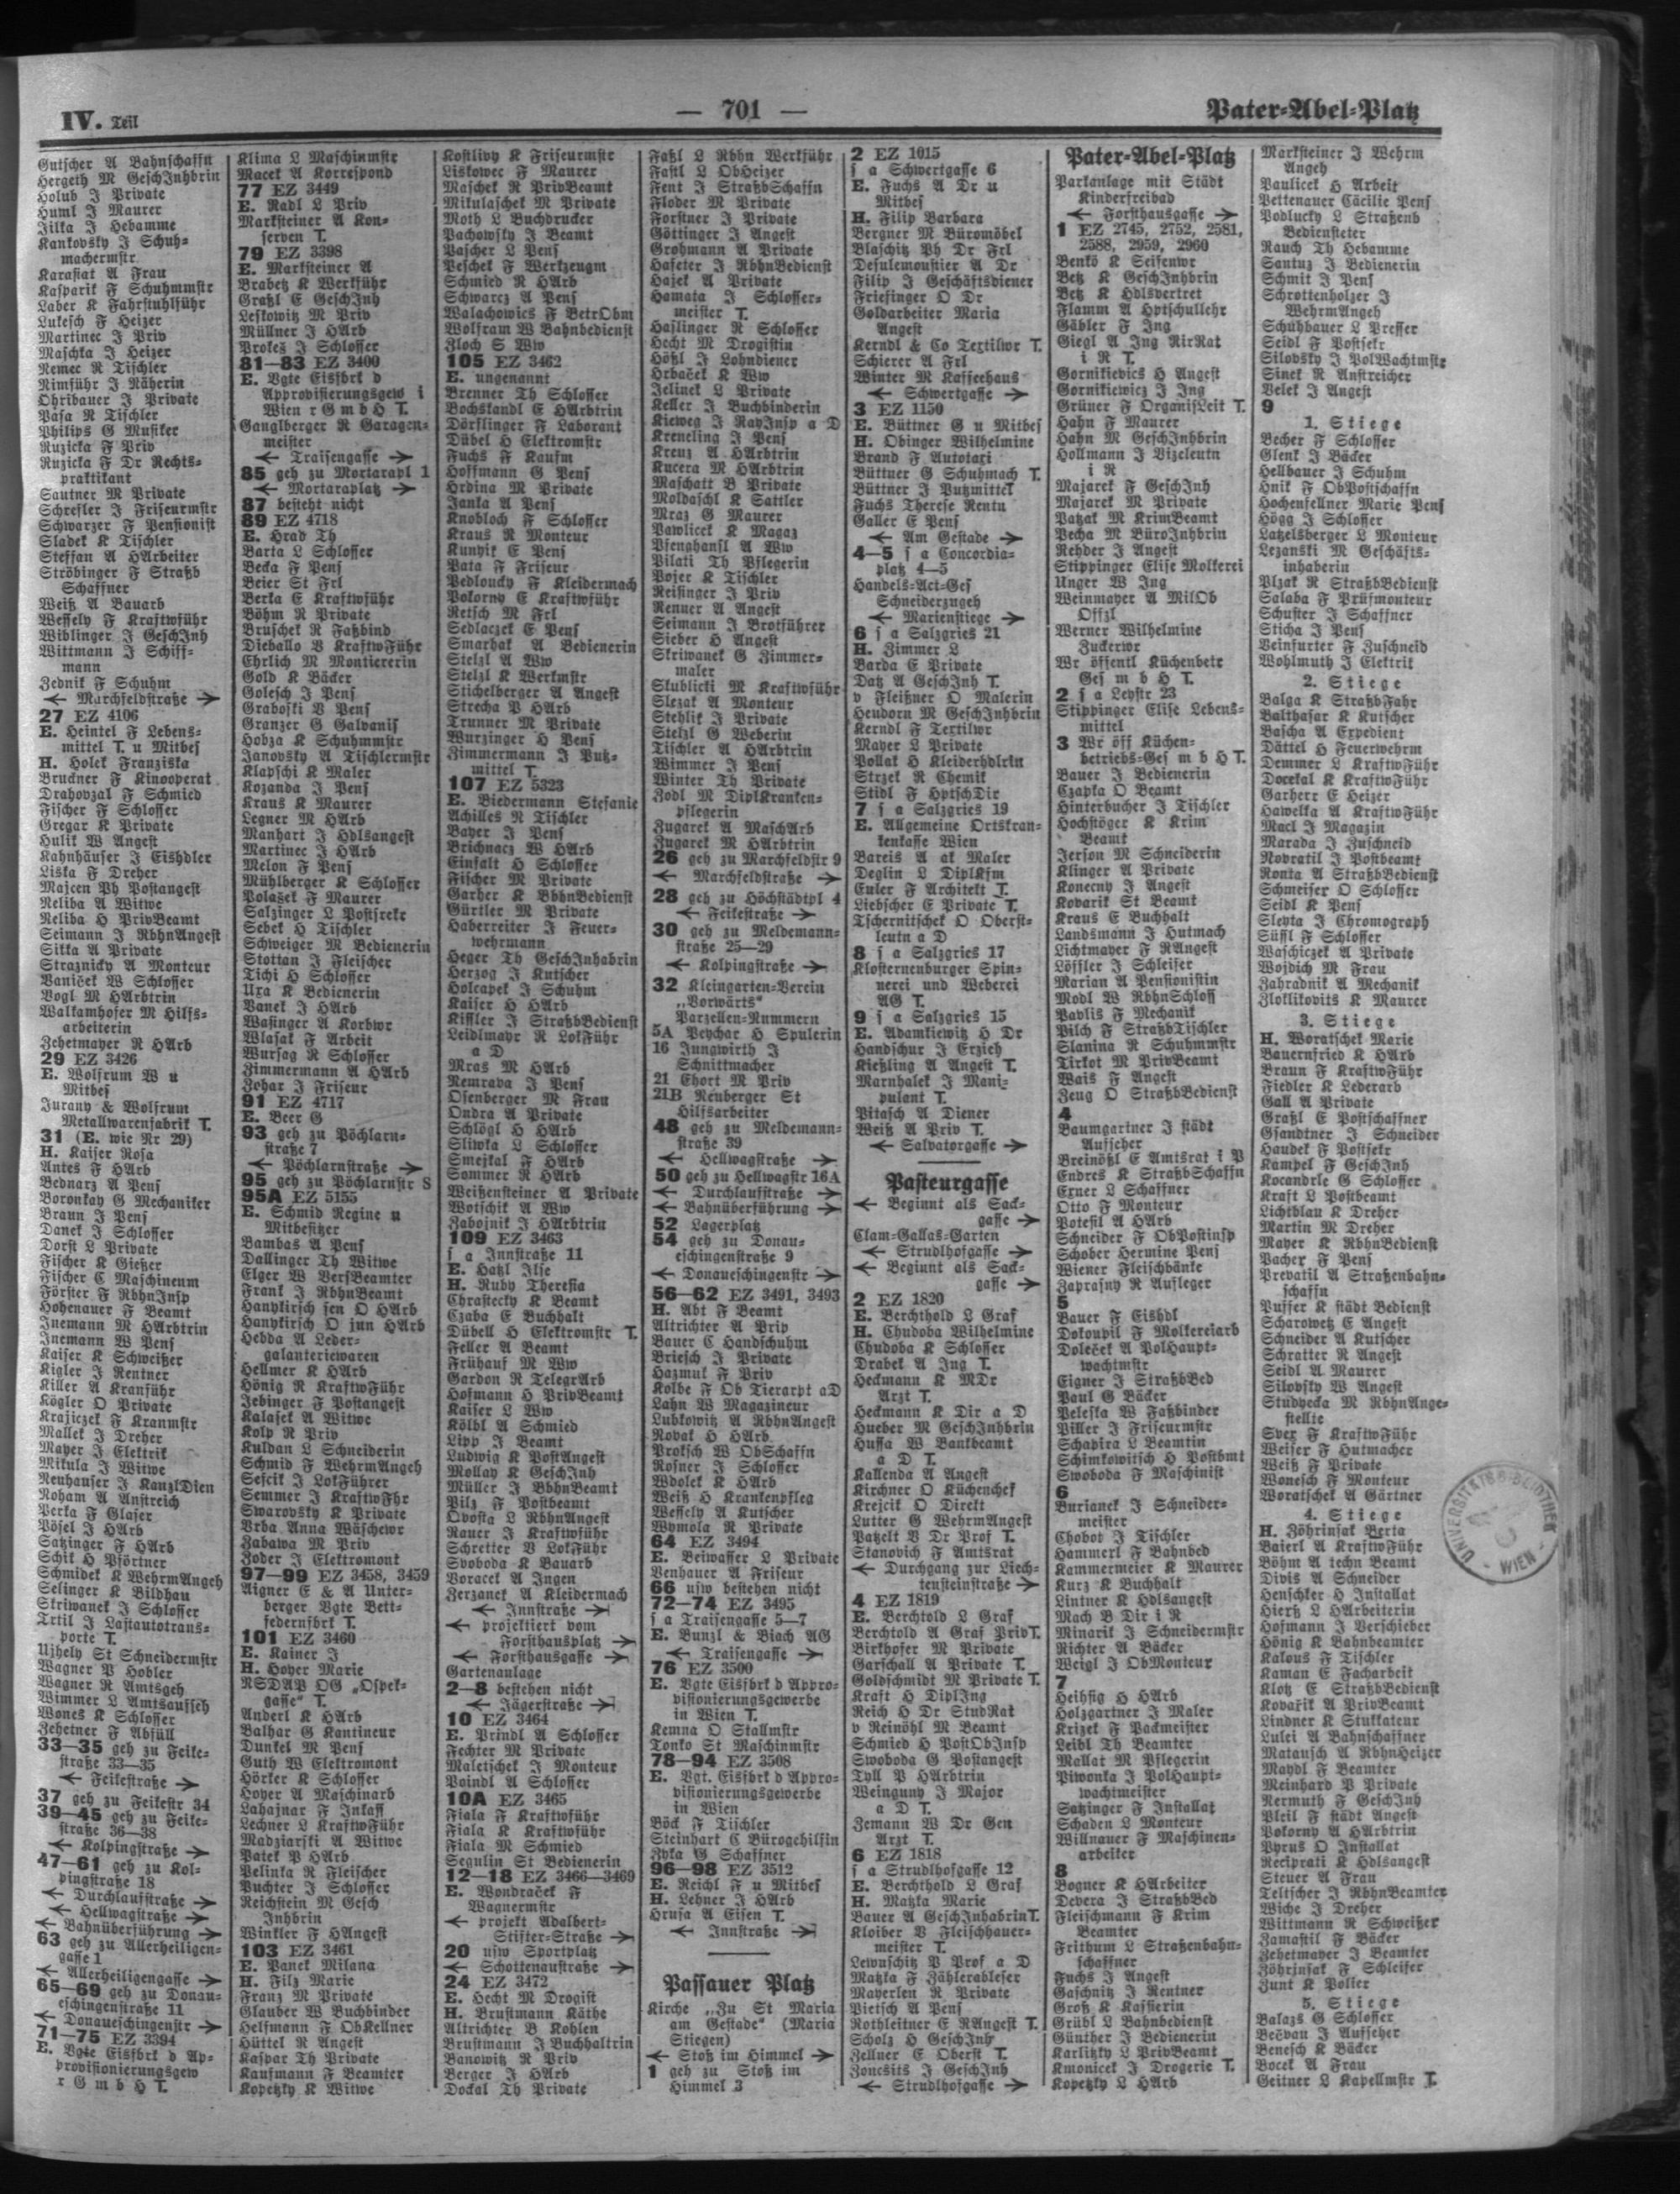 IV. Teil
— 701 —
Pater-Abel-Platz
Gutscher A Bahnschaffn
Hergeth M GeschJnhbrin
Holub J Private
Huml J Maurer
Jilka J Hebamme
Kankovsky J Schuh-
machermstr
Karasiat A Frau
Kasparik F Schuhmmstr
Laber K Fahrstuhlführ
Lukesch F Heizer
Martinec J Priv
Maschka J Heizer
Nemec R Tischler
Nimführ J Näherin
Ohribauer J Private
Pasa R Tischler
Philips G Musiker
Ruzicka F Priv
Ruzicka F Dr Rechts-
praktikant
Sautner M Private
Schrefler J Friseurmstr
Schwarzer F Pensionist
Sladek K Tischler
Steffan A HArbeiter
Ströbinger F Straßb
Schaffner
Weiß A Bauarb
Wessely F Kraftwführ
Wiblinger J GeschJnh
Wittmann J Schiff-
mann
Zednik F Schuhm
← Marchfeldstraße →
27 EZ 4106
E. Heintel F Lebens-
mittel T. u Mitbes
H. Holek Franziska
Bruckner F Kinooperat
Drahovzal F Schmied
Fischer F Schlosser
Gregar K Private
Hulik W Angest
Kahnhäuser J Eishdler
Liska F Dreher
Majcen Ph Postangest
Neliba A Witwe
Neliba H PrivBeamt
Seimann J RbhnAngest
Sitka A Private
Straznicky A Monteur
Vaniček W Schlosser
Vogl M HArbtrin
Walkamhofer M Hilfs-
arbeiterin
Zehetmayer R HArb
29 EZ 3426
E. Wolfrum W u
Mitbes
Jurany & Wolfrum
Metallwarenfabrik T.
31 (E. wie Nr 29)
H. Kaiser Rosa
Antes F HArb
Bednarz A Pens
Boronkay G Mechaniker
Braun J Pens
Danek J Schlosser
Dorst L Private
Fischer K Gießer
Fischer C Maschineum
Förster F RbhnJnsp
Hohenauer F Beamt
Jnemann M HArbtrin
Jnemann W Pens
Kaiser K Schweißer
Kigler J Rentner
Killer A Kranführ
Kögler O Private
Krajiczek F Kranmstr
Mallek J Dreher
Mayer J Elektrik
Mikula J Witwe
Neuhauser J KanzlDien
Noham A Anstreich
Perka F Glaser
Pösel J HArb
Satzinger F HArb
Schik H Pförtner
Schmidek K WehrmAngeh
Selinger K Bildhau
Skriwanek J Schlosser
Trtil J Lastautotrans-
porte T.
Ujhely St Schneidermstr
Wagner P Hobler
Wagner R Amtsgeh
Wimmer L Amtsaufseh
Wones K Schlosser
Zehetner F Abfüll
33—35 geh zu Feike-
straße 33—35
← Feikestraße →
37 geh zu Feikestr 34
39—45 geh zu Feike-
straße 36—38
← Kolpingstraße →
47—61 geh zu Kol-
pingstraße 18
← Durchlaufstraße →
← Hellwagstraße →
← Bahnüberführung →
63 geh zu Allerheiligen-
gasse 1
← Allerheiligengasse →
65—69 geh zu Donau-
eschingenstraße 11
← Donaueschingenstr →
71—75 EZ 3394
E. Vgte Eisfbrk d Ap-
provisionierungsgew
r G m b H T.
Klima L Maschinmstr
Macek A Korrespond
77 EZ 3449
E. Radl L Priv
Marksteiner A Kon-
serven T.
79 EZ 3398
E. Marksteiner A
Brabetz K Werkführ
Graßl E GeschJnh
Leskowitz M Priv
Müllner J HArb
Prokeš J Schlosser
81—83 EZ 3400
E. Vgte Eisfbrk d
Approvisierungsgew i
Wien r G m b H T.
Ganglberger R Garagen-
meister
← Traisengasse →
85 geh zu Mortarapl 1
← Mortaraplatz →
87 besteht nicht
89 EZ 4718
E. Hrad Th
Barta L Schlosser
Becka F Pens
Beier St Frl
Berka E Kraftwführ
Böhm R Private
Bruschek R Faßbind
Dieballo V KraftwFühr
Ehrlich M Montiererin
Gold K Bäcker
Golesch J Pens
Graboski V Pens
Granzer G Galvanis
Hobza K Schuhmmstr
Janovsky A Tischlermstr
Klapschi K Maler
Kozanda J Pens
Kraus K Maurer
Legner M HArb
Manhart J Hdlsangest
Martinec J HArb
Melon F Pens
Mühlberger K Schlosser
Polašek F Maurer
Salzinger L Postsrekr
Sebek H Tischler
Schweiger M Bedienerin
Stottan J Fleischer
Tichi H Schlosser
Uxa K Bedienerin
Vanek J HArb
Wasinger A Korbwr
Wlasak F Arbeit
Wursag R Schlosser
Zimmermann A HArb
Zohar J Friseur
91 EZ 4717
E. Beer G
93 geh zu Pöchlarn-
straße 7
← Pöchlarnstraße →
95 geh zu Pöchlarnstr 8
95A EZ 5155
E. Schmid Regine u
Mitbesitzer
Bambas A Pens
Dallinger Th Witwe
Elger W VersBeamter
Frank J RbhnBeamt
Hanykirsch sen O HArb
Hanykirsch O jun HArb
Hebda A Leder-
galanteriewaren
Hellmer K HArb
Hönig R KraftwFühr
Jebinger F Postangest
Kalasek A Witwe
Kolp R Priv
Kuldan L Schneiderin
Schmid F WehrmAngeh
Sefcik J LokFührer
Semmer J KraftwFhr
Swarovsky K Private
Vrba Anna Wäschewr
Zabawa M Priv
Zoder J Elektromont
97—99 EZ 3458, 3459
Aigner E & A Unter-
berger Vgte Bett-
federnfbrk T.
101 EZ 3460
E. Kainer J
H. Hoyer Marie
NSDAP OG „Ospel-
gasse" T.
Anderl K HArb
Balhar G Kantineur
Dunkel M Pens
Guth W Elektromont
Hörker K Schlosser
Hoyer A Maschinarb
Lahajnar F Inkass
Lechner L KraftwFühr
Madziarski A Witwe
Patek P HArb
Pelinka R Fleischer
Puchter J Schlosser
Reichstein M Gesch
Jnhbrin
Winkler F HAngest
103 EZ 3461
E. Panek Milana
H. Filz Marie
Franz M Private
Glauber W Buchbinder
Helfmann F ObKellner
Hüttel R Angest
Kaspar Th Private
Kaufmann F Beamter
Kopetzky K Witwe
Kostlivy K Friseurmstr
Liskowec F Maurer
Maschek R PrivBeamt
Mikulaschek M Private
Moth L Buchdrucker
Pachowsky J Beamt
Pascher L Pens
Peschek F Werkzeugm
Schmied R HArb
Schwarcz A Pens
Walachowics F BetrObm
Wolfram W Bahnbedienst
Zloch S Ww
105 EZ 3462
E. ungenannt
Brenner Th Schlosser
Bochskandl E HArbtrin
Dörflinger F Laborant
Dübel H Elektromstr
Fuchs F Kaufm
Hoffmann G Pens
Hrdina M Private
Janka A Pens
Knobloch F Schlosser
Kraus R Monteur
Kunyik E Pens
Pata F Friseur
Pedloucky F Kleidermach
Pokorny E Kraftwführ
Retsch M Frl
Sedlaczek E Pens
Smarhak A Bedienerin
Stelzl A Ww
Stelzl K Werkmstr
Stichelberger A Angest
Strecha P HArb
Trunner M Private
Wurzinger H Pens
Zimmermann J Putz-
mittel T.
107 EZ 5323
E. Biedermann Stefanie
Achilles R Tischler
Bayer J Pens
Brichnacz W HArb
Einfalt H Schlosser
Fischer M Private
Garher K BbhnBedienst
Gürtler M Private
Haberreiter J Feuer-
wehrmann
Heger Th GeschJnhabrin
Herzog J Kutscher
Holcapek J Schuhm
Kaiser H HArb
Kiffler J StraßbBedienst
Leidlmayr R LokFühr
a D
Mras M HArb
Nemrava J Pens
Osenberger M Frau
Ondra A Private
Schlögl H HArb
Sliwka L Schlosser
Smejkal F HArb
Sommer R HArb
Weißensteiner A Private
Wotschik A Ww
Zabojnik J HArbtrin
109 EZ 3463
s a Innstraße 11
E. Hatzl Ilse
H. Ruby Theresia
Chrastecky K Beamt
Czaba E Buchhalt
Dübell H Elektromstr T.
Feller A Beamt
Frühauf M Ww
Gardon R TelegrArb
Hofmann H PrivBeamt
Kaiser L Ww
Kölbl A Schmied
Lipp J Beamt
Ludwig K PostAngest
Mollay K GeschJnh
Müller J BbhnBeamt
Pilz F Postbeamt
Qvosta L RbhnAngest
Rauer J Kraftwführ
Schretter V LokFühr
Svoboda K Bauarb
Voracek A Jngen
Zerzanek A Kleidermach
← Innstraße →
← projektiert vom
Forsthausplatz →
← Forsthausgasse →
Gartenanlage
2—8 bestehen nicht
← Jägerstraße →
10 EZ 3464
E. Prindl A Schlosser
Fechter M Private
Maletschek J Monteur
Poindl A Schlosser
10A EZ 3465
Fiala F Kraftwführ
Fiala K Kraftwführ
Fiala M Schmied
Segulin St Bedienerin
12—18 EZ 3466—3469
E. Wondraček F
Wagnermstr
← projekt Adalbert-
Stifter-Straße →
20 usw Sportplatz
← Schottenaustraße →
24 EZ 3472
E. Hecht M Drogist
H. Brustmann Käthe
Altrichter B Kohlen
Brustmann J Buchhaltrin
Banowitz R Priv
Berger J HArb
Dockal Th Private
Faßl L Rbhn Werkführ
Fastl L ObHeizer
Fent J StraßbSchaffn
Floder M Private
Forstner J Private
Göttinger J Angest
Grohmann A Private
Hafeter J RbhnBedienst
Hajek A Private
Hamata J Schlosser-
meister T.
Haslinger R Schlosser
Hecht M Drogistin
Hößl J Lohndiener
Hrbaček K Ww
Jelinek L Private
Keller J Buchbinderin
Kieweg J RayJnsp a D
Kreneling J Pens
Kreuz A HArbtrin
Kucera M HArbtrin
Maschatt B Private
Moldaschl K Sattler
Mraz G Maurer
Pawlicek K Magaz
Pfenghansl A Ww
Pilati Th Pflegerin
Pojer K Tischler
Reisinger J Priv
Renner A Angest
Seimann J Brotführer
Sieber H Angest
Skriwanek G Zimmer-
maler
Skublicki M Kraftwführ
Slezak A Monteur
Stehlik J Private
Stelzl G Weberin
Tischler A HArbtrin
Wimmer J Pens
Winter Th Private
Zodl M DiplKranken-
pflegerin
Zugarek A MaschArb
Zugarek M HArbtrin
26 geh zu Marchfeldstr 9
← Marchfeldstraße →
28 geh zu Höchstädtpl 4
← Feikestraße →
30 geh zu Meldemann-
straße 25—29
← Kolpingstraße →
32 Kleingarten-Verein
„Vorwärts"
Parzellen-Nummern
5A Peychar H Spulerin
16 Jungwirth J
Schnittmacher
21 Ehort M Priv
21B Neuberger St
Hilfsarbeiter
48 geh zu Meldemann-
straße 39
← Hellwagstraße →
50 geh zu Hellwagstr 16A
← Durchlaufstraße →
← Bahnüberführung →
52 Lagerplatz
54 geh zu Donau-
eschingenstraße 9
← Donaueschingenstr →
56—62 EZ 3491, 3493
H. Abt F Beamt
Altrichter A Priv
Bauer C Handschuhm
Briesch J Private
Hazmuk F Priv
Kolbe F Ob Tierarpt aD
Lahn W Magazineur
Lubkowitz A RbhnAngest
Novak H HArb
Proksch W ObSchaffn
Rosner J Schlosser
Wdolek K HArb
Weiß H Krankenpfleg
Wessely A Kutscher
Wymola R Private
64 EZ 3494
E. Beiwasser L Private
Benhauer A Friseur
66 usw bestehen nicht
72—74 EZ 3495
s a Traisengasse 5—7
E. Bunzl & Biach AG
← Traisengasse →
76 EZ 3500
E. Vgte Eisfbrk d Appro-
visionierungsgewerbe
in Wien T.
Kemna O Stallmstr
Tonko St Maschinmstr
78—94 EZ 3508
E. Vgt. Eisfbrk d Appro-
visionierungsgewerbe
in Wien
Böck F Tischler
Steinhart C Bürogehilfin
Zyka G Schaffner
96—98 EZ 3512
E. Reichl F u Mitbes
H. Lehner J HArb
Hrusa A Eisen T.
← Innstraße →
Passauer Platz
Kirche „Zu St Maria
am Gestade" (Maria
Stiegen)
← Stoß im Himmel →
1 geh zu Stoß im
Himmel 3
2 EZ 1015
s a Schwertgasse 6
E. Fuchs A Dr u
Mitbes
H. Filip Barbara
Bergner M Büromöbel
Blaschitz Ph Dr Frl
Desulemoustier A Dr
Filip J Geschäftsdiener
Friesinger O Dr
Goldarbeiter Maria
Angest
Kerndl & Co Textilwr T.
Schierer A Frl
Winter M Kaffeehaus
← Schwertgasse →
3 EZ 1150
E. Büttner G u Mitbes
H. Obinger Wilhelmine
Brand F Autotaxi
Büttuer G Schuhmach T.
Büttner J Putzmittel
Fuchs Therese Rentn
Galler E Pens
← Am Gestade →
4—5 s a Concordia-
platz 4—5
Handels-Act-Ges
Schneiderzugeh
← Marienstiege →
6 s a Salzgries 21
H. Zimmer L
Barda E Private
Datz A GeschJnh T.
v Fleißner O Malerin
Heudorn M GeschJnhbrin
Kerndl F Textilwr
Mayer L Private
Pollak H Kleiderhdlrln
Strzek R Chemik
Stidl F HptschDir
7 s a Salzgries 19
E. Allgemeine Ortskran-
kenkasse Wien
Bareis A ak Maler
Deglin L DiplKfm
Euler F Architekt T.
Liebscher E Private T.
Tschernitschek O Oberst-
leutn a D
8 s a Salzgries 17
Klosterneuburger Spin-
nerei und Weberei
AG T.
9 s a Salzgries 15
E. Adamkiewitz H Dr
Handschur J Erzieh
Kießling A Angest T.
Marnhalek J Mani-
pulant T.
Vitasch A Diener
Weiß A Priv T.
← Salvatorgasse →
Pasteurgasse
← Beginnt als Sack-
gasse →
Clam-Gallas-Garten
← Strudlhofgasse →
← Beginnt als Sack-
gasse →
2 EZ 1820
E. Berchthold L Graf
H. Chudoba Wilhelmine
Chudoba K Schlosser
Drabek A Ing T.
Heckmann K MDr
Arzt T.
Heckmann K Dir a D
Hueber M GeschJnhbrin
Hussa W Bankbeamt
a D T.
Kallenda A Angest
Kirchner O Küchenchef
Krejcik O Direkt
Lutter G WehrmAngest
Patzelt V Dr Prof T.
Stanovich F Amtsrat
← Durchgang zur Liech-
tensteinstraße →
4 EZ 1819
E. Berchtold L Graf
Berchtold A Graf PrivT.
Birkhofer M Private
Garschall A Private T.
Goldschmidt M Private T.
Kraft H DiplJng
Reich H Dr StudRat
v Reinöhl M Beamt
Schmied H PostObJnsp
Swoboda G Postangest
Tyll P HArbtrin
Weinguny J Major
a D T.
Zemann W Dr Gen
Arzt T.
6 EZ 1818
s a Strudlhofgasse 12
E. Berchthold L Graf
H. Matzka Marie
Bauer A GeschJnhabrinT.
Kloiber V Fleischhauer-
meister T.
Lewuschitz V Prof a D
Matzka F Zählerableser
Mayerlen R Private
Pietsch A Pens
Rothleitner E RAngest T.
Scholz H GeschJnh
Zellner E Oberst T.
Zoncsits J GeschJnh
← Strudlhofgasse →
Pater-Abel-Platz
Parkanlage mit Städt
Kinderfreibad
← Forsthausgasse →
1 EZ 2745, 2752, 2581,
2588, 2959, 2960
Benkö K Seifenwr
Betz K GeschJnhbrin
Betz K Hdlsvertret
Flamm A Hptschullehr
Gäbler F Ing
Giegl A Ing RirRat
i R T.
Gornikievics H Angest
Gornikiewicz J Ing
Grüner F OrganisLeit T.
Hahn F Maurer
Hahn M GeschJnhbrin
Hollmann J Vizeleutn
i R
Majarek F GeschJnh
Majarek M Private
Patzak M KrimBeamt
Pecha M BüroJnhbrin
Rehder J Angest
Stippinger Elise Molkerei
Unger W Ing
Weinmayer A MilOb
Offzl
Werner Wilhelmine
Zuckerwr
Wr öffentl Küchenbetr
Ges m b H T.
2 s a Leystr 23
Stippinger Elise Lebens-
mittel
3 Wr öff Küchen-
betriebs-Ges m b H T.
Bauer J Bedienerin
Czapka O Beamt
Hinterbucher J Tischler
Hochstöger K Krim
Beamt
Jerson M Schneiderin
Klinger A Private
Konecny J Angest
Kovarik St Beamt
Kraus E Buchhalt
Landsmann J Hutmach
Lichtmayer F RAngest
Löffler J Schleifer
Marian A Pensionistin
Modl W RbhnSchloss
Pavlis F Mechanik
Pilch F StraßbTischler
Slanina R Schuhmmstr
Tirkot M PrivBeamt
Wais F Angest
Zeug O StraßbBedienst
4
Baumgartner J städt
Aufseher
Breinößl E Amtsrat i P
Endres K StraßbSchaffn
Exner L Schaffner
Otto F Monteur
Potesil A HArb
Schneider F ObPostinsp
Schober Hermine Pens
Wiener Fleischbänke
Zaprasny R Ausleger
5
Bauer F Eishdl
Dokoupil F Molkereiarb
Doleček A PolHaupt-
wachtmstr
Eigner J StraßbBed
Paul G Bäcker
Peleska W Faßbinder
Piller J Friseurmstr
Schapira L Beamtin
Schimkowitsch H Postbmt
Swoboda F Maschinist
6
Burianek J Schneider-
meister
Chobot J Tischler
Hammerl F Bahnbed
Kammermeier K Maurer
Kurz K Buchhalt
Lintner K Hdlsangest
Mach B Dir i R
Minarik J Schneidermstr
Richter A Bäcker
Weigl J ObMonteur
7
Heihsig H HArb
Holzgartner J Maler
Krizek F Packmeister
Leibl Th Beamter
Mallat M Pflegerin
Piwonka J PolHaupt-
wachtmeister
Satzinger F Installat
Schaden L Monteur
Willnauer F Maschinen-
arbeiter
8
Bogner K HArbeiter
Devera J StraßbBed
Fleischmann F Krim
Beamter
Frithum L Straßenbahn-
schaffner
Fuchs J Angest
Gaschnitz J Rentner
Groß K Kassierin
Grübl L Bahnbedienst
Günther J Bedienerin
Karlitzky L PrivBeamt
Kmonicek J Drogerie T.
Kopetzky L HArb
Marksteiner J Wehrm
Angeh
Paulicek H Arbeit
Pettenauer Cäcilie Pens
Podlucky L Straßenb
Bediensteter
Rauch Th Hebamme
Santuz J Bedienerin
Schmit J Pens
Schrottenholzer J
WehrmAngeh
Schuhbauer L Presser
Seidl F Postsekr
Silovsky J PolWachtmstr
Sinek R Anstreicher
Velek J Angest
9
1. Stiege
Becher F Schlosser
Glenk J Bäcker
Hellbauer J Schuhm
Hnik F ObPostschaffn
Hochenfellner Marie Pens
Högg J Schlosser
Latzelsberger L Monteur
Lezanski M Geschäfts-
inhaberin
Plzak R StraßbBedienst
Salaba F Prüfmonteur
Schuster J Schaffner
Sticha J Pens
Veinfurter F Zuschneid
Wohlmuth J Elektrik
2. Stiege
Balga K StraßbFahr
Balthasar K Kutscher
Bascha A Expedient
Dättel H Feuerwehrm
Demmer L KraftwFühr
Docekal K KraftwFühr
Garherr E Heizer
Hawelka A KraftwFühr
Macl J Magazin
Marada J Zuschneid
Novratil J Postbeamt
Ronta A StraßbBedienst
Schmeiser O Schlosser
Seidl K Pens
Sleyta J Chromograph
Süssl F Schlosser
Waschiczek A Private
Wojdich M Frau
Zahradnik A Mechanik
Zloklikovits K Maurer
3. Stiege
H. Woratschek Marie
Bauernfried K HArb
Braun F KraftwFühr
Fiedler K Lederarb
Gall A Private
Graßl E Postschaffner
Gsandtner J Schneider
Haudek F Postsekr
Kampel F GeschJnh
Kocandrle G Schlosser
Kraft L Postbeamt
Lichtblau K Dreher
Martin M Dreher
Mayer K RbhnBedienst
Pacher F Pens
Prevatil A Straßenbahn-
schaffn
Pusser K städt Bedienst
Scharowetz E Angest
Schneider A Kutscher
Schratter R Angest
Seidl A Maurer
Silovsky W Angest
Studyecka M RbhnAnge-
stellte
Svex F KraftwFühr
Weiser F Hutmacher
Weiß F Private
Wonesch F Monteur
Woratschek A Gärtner
4. Stiege
H. Zöhrinsak Berta
Baierl A KraftwFühr
Böhm A techn Beamt
Divis A Schneider
Henschker H Installat
Hierß L HArbeiterin
Hofmann J Verschieber
Hönig K Bahnbeamter
Kalous F Tischler
Kaman E Facharbeit
Klotz E StraßbBedienst
Kovařik A PrivBeamt
Lindner K Stukkateur
Lulei A Bahnschaffner
Matausch A RbhnHeizer
Maydl F Beamter
Meinhard P Private
Nermuth F GeschJnh
Pleil F städt Angest
Pokorny A HArbtrin
Pyrus O Installat
Reciprati K Hdlsangest
Steuer A Frau
Teltscher J RbhnBeamter
Wiche J Dreher
Wittmann R Schweißer
Zamastil F Bäcker
Zehetmayer J Beamter
Zöhrinsak F Schleifer
Zunt K Polier
5. Stiege
Balazs G Schlosser
Bečvan J Aufseher
Benesch K Bäcker
Bocek A Frau
Geitner L Kapellmstr T.
UNIVERSITÄTSBIBLIOTHEK
- WIEN -